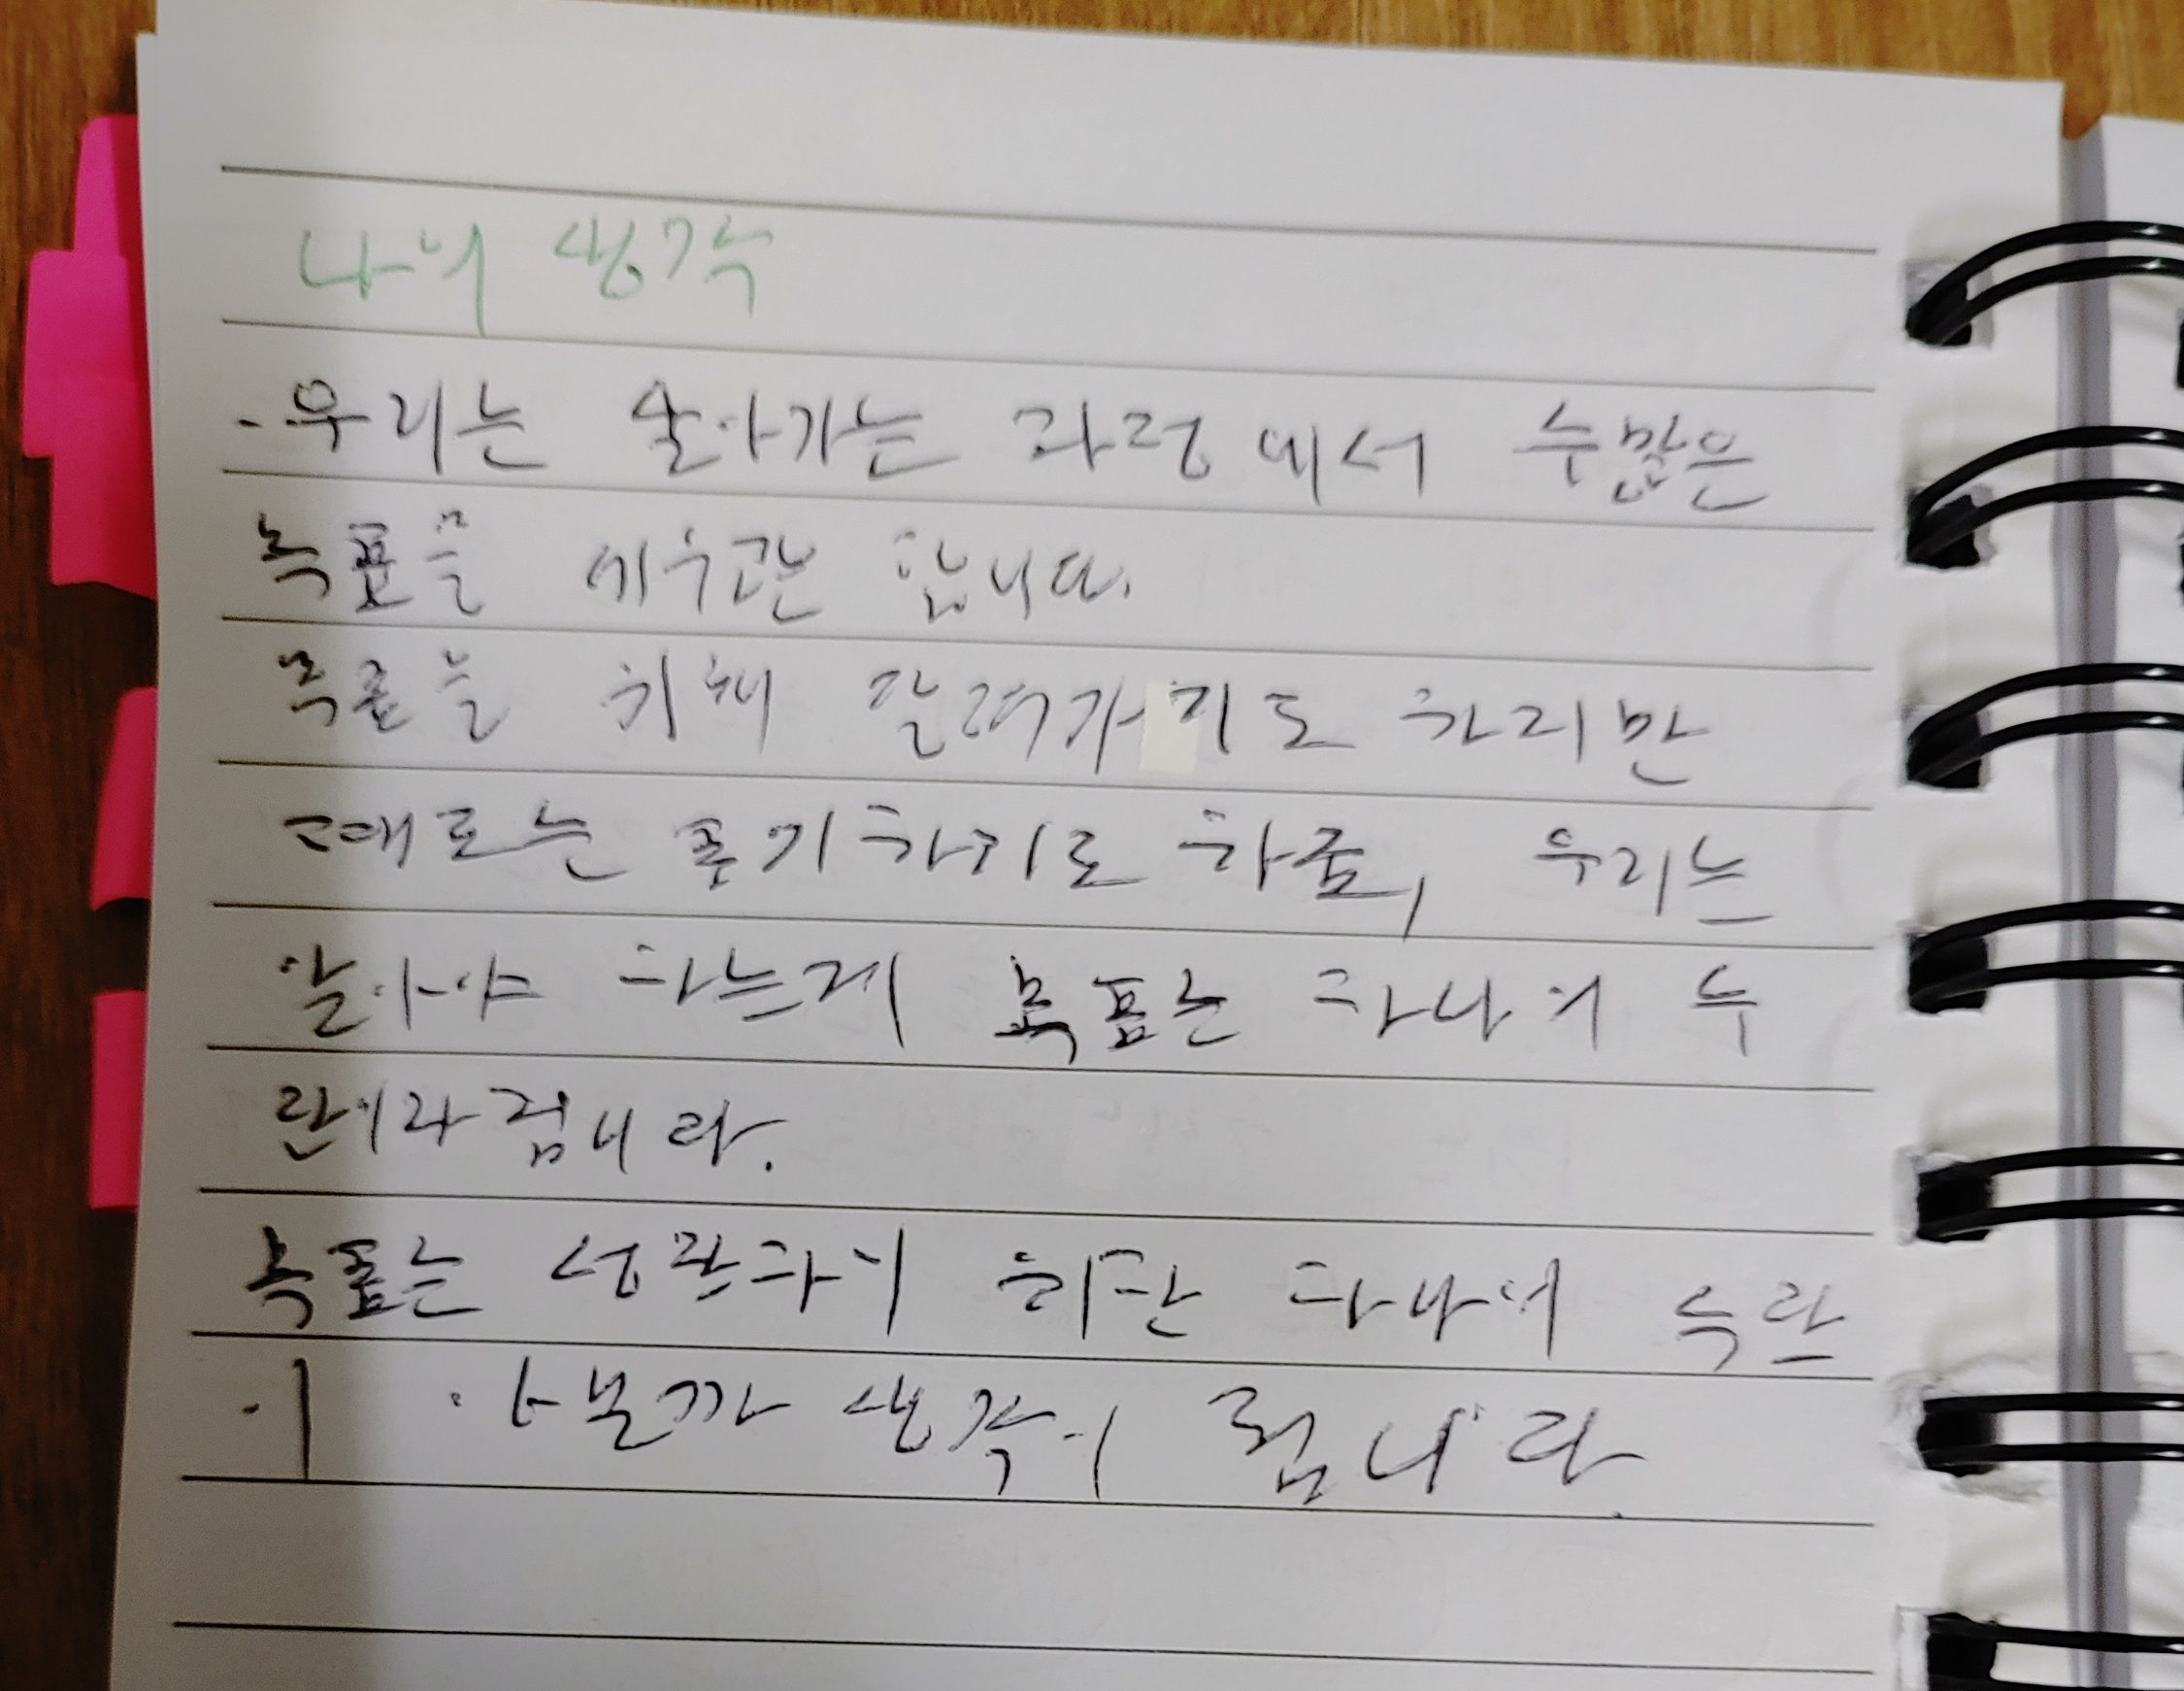 나의 생각
- 우리는 살아가는 과정에서 수많은
목표를 세우곤 합니다.
목표를 위해 달려가기도 하지만
때로는 포기하기도 하죠, 우리는
알아야 하는게 목표는 하나의 수
단이라 점니다.
목표는 성장하기 위한 하나의 수단
이 아닐까 생각이 됩니다.